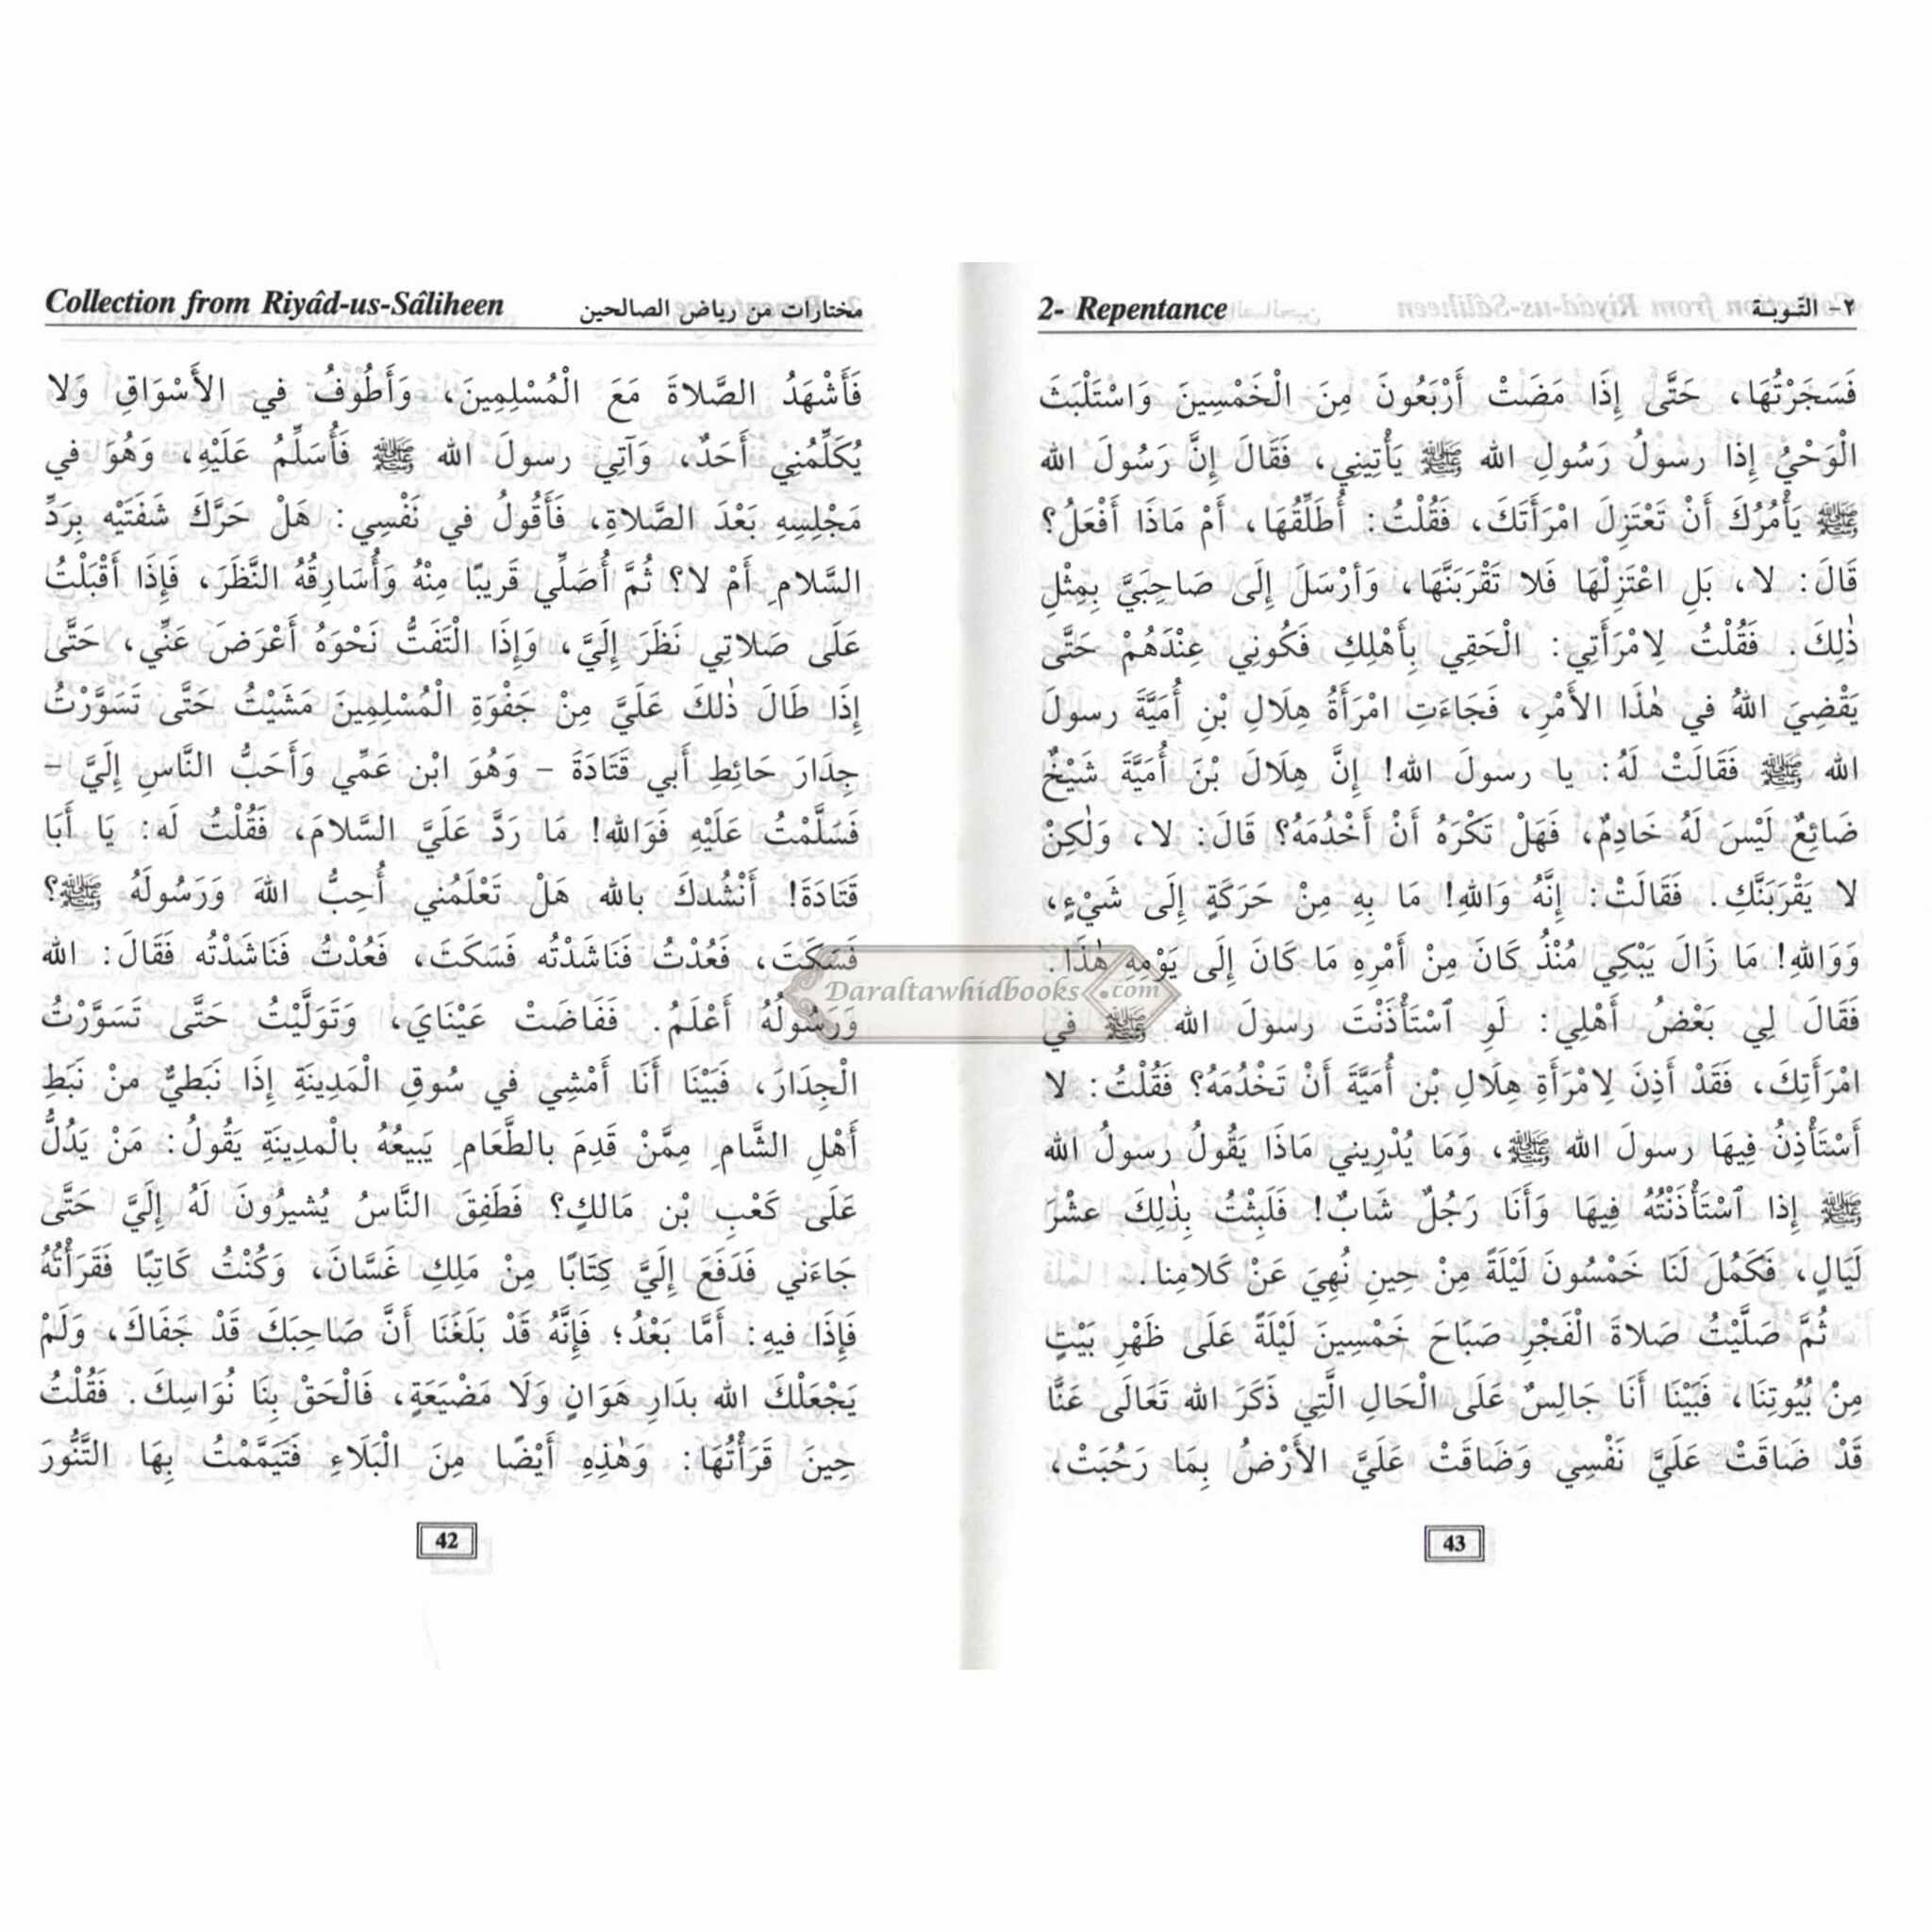 Collection from Riyâd-us-Sâliheen مختارات من رياض الصالحين
فَأَشْهَدُ الصَّلاةَ مَعَ الْمُسْلِمِينَ، وَأَطُوفُ في الأَسْوَاقِ وَلا
يُكَلِّمُنِي أَحَدٌ، وَآتِي رسولَ الله ﷺ فَأُسَلِّمُ عَلَيْهِ، وَهُوَ في
مَجْلِسِهِ بَعْدَ الصَّلاةِ، فَأَقُولُ في نَفْسِي: هَلْ حَرَّكَ شَفَتَيْه بِرَدِّ
السَّلامِ أَمْ لا؟ ثُمَّ أُصَلِّي قَرِيبًا مِنْهُ وَأُسَارِقُهُ النَّظَرَ، فَإِذَا أَقْبَلْتُ
عَلَى صَلاتِي نَظَرَ إِلَيَّ، وَإِذَا الْتَفَتُّ نَحْوَهُ أَعْرَضَ عَنِّي، حَتَّى
إِذَا طَالَ ذٰلكَ عَلَيَّ مِنْ جَفْوَةِ الْمُسْلِمِينَ مَشَيْتُ حَتَّى تَسَوَّرْتُ
جِدَارَ حَائِطِ أَبي قَتَادَةَ – وَهُوَ ابْن عَمِّي وَأَحَبُّ النَّاسِ إِلَيَّ –
فَسَلَّمْتُ عَلَيْهِ فَوَالله! مَا رَدَّ عَلَيَّ السَّلامَ، فَقُلْتُ لَه: يَا أَبَا
قَتَادَةَ! أَنْشُدكَ بالله هَلْ تَعْلَمُني أُحِبُّ اللهَ وَرَسُولَهُ ﷺ؟
فَسَكَتَ، فَعُدْتُ فَنَاشَدْتُه فَسَكَتَ، فَعُدْتُ فَنَاشَدْتُه فَقَالَ: الله
وَرَسُولُهُ أَعْلَمُ. فَفَاضَتْ عَيْنَايَ، وَتَوَلَّيْتُ حَتَّى تَسَوَّرْتُ
الْجِدَارَ، فَبَيْنَا أَنَا أَمْشِي في سُوقِ الْمَدِينَةِ إِذَا نَبَطيٌّ منْ نَبَطِ
أَهْلِ الشَّامِ مِمَّنْ قَدِمَ بالطَّعَامِ يَبيعُهُ بالْمدِينَةِ يَقُولُ: مَنْ يَدُلُّ
عَلَى كَعْبِ بْن مَالكٍ؟ فَطَفِقَ النَّاسُ يُشيرُونَ لَهُ إِلَيَّ حَتَّى
جَاءَني فَدَفَعَ إِلَيَّ كِتَابًا مِنْ مَلِكِ غَسَّانَ، وَكُنْتُ كَاتِبًا فَقَرَأْتُهُ
فَإِذَا فيهِ: أَمَّا بَعْدُ؛ فَإِنَّهُ قَدْ بَلَغَنَا أَنَّ صَاحِبَكَ قَدْ جَفَاكَ، وَلَمْ
يَجْعَلْكَ الله بدَارِ هَوَانٍ وَلَا مَضْيَعَةٍ، فَالْحَقْ بِنَا نُوَاسِكَ. فَقُلْتُ
حِينَ قَرَأْتُهَا: وَهٰذِهِ أَيْضًا مِنَ الْبَلَاءِ فَتَيَمَّمْتُ بِهَا التَّنُّورَ
42
2- Repentance ٢- التَـوبـة
فَسَجَرْتُهَا، حَتَّى إِذَا مَضَتْ أَرْبَعُونَ مِنَ الْخَمْسِينَ وَاسْتَلْبَثَ
الْوَحْيُ إِذا رسولُ رَسُولِ الله ﷺ يَأْتِينِي، فَقَالَ إِنَّ رَسُولَ الله
ﷺ يَأْمُرُكَ أَنْ تَعْتَزِلَ امْرَأَتَكَ، فَقُلْتُ: أُطَلِّقُهَا، أَمْ مَاذَا أَفْعَلُ؟
قَالَ: لا، بَلِ اعْتَزِلْهَا فَلا تَقْرَبَنَّهَا، وَأرْسَلَ إِلَى صَاحِبَيَّ بِمِثْلِ
ذٰلِكَ. فَقُلْتُ لِامْرَأَتِي: الْحَقِي بِأَهْلِكِ فَكُونِي عِنْدَهُمْ حَتَّى
يَقْضِيَ اللهُ في هٰذَا الأَمْرِ، فَجَاءَتِ امْرَأَةُ هِلَالِ بْنِ أُمَيَّةَ رسولَ
الله ﷺ فَقَالَتْ لَهُ: يا رسولَ الله! إِنَّ هِلَالَ بْنَ أُمَيَّةَ شَيْخٌ
ضَائِعٌ لَيْسَ لَهُ خَادِمٌ، فَهَلْ تَكْرَهُ أَنْ أَخْدُمَهُ؟ قَالَ: لا، وَلٰكِنْ
لا يَقْرَبَنَّكِ. فَقَالَتْ: إِنَّهُ وَاللهِ! مَا بِهِ مِنْ حَرَكَةٍ إِلَى شَيْءٍ،
وَوَاللهِ! مَا زَالَ يَبْكِي مُنْذُ كَانَ مِنْ أَمْرِهِ مَا كَانَ إِلَى يَوْمِهِ هٰذَا.
فَقَالَ لِي بَعْضُ أَهْلِي: لَوِ ٱسْتَأْذَنْتَ رسولَ الله ﷺ في
امْرَأَتِكَ، فَقَدْ أَذِنَ لِامْرَأَةِ هِلَالِ بْن أُمَيَّةَ أَنْ تَخْدُمَهُ؟ فَقُلْتُ: لا
أَسْتَأْذِنُ فِيهَا رسولَ الله ﷺ، وَمَا يُدْرِيني مَاذَا يَقُولُ رسولُ الله
ﷺ إِذا ٱسْتَأْذَنْتُهُ فِيهَا وَأَنَا رَجُلٌ شَابٌ! فَلَبِثْتُ بِذٰلِكَ عشْرَ
لَيَالٍ، فَكَمُلَ لَنَا خَمْسُونَ لَيْلَةً مِنْ حِينِ نُهِيَ عَنْ كَلامِنا.
ثُمَّ صَلَّيْتُ صَلاةَ الْفَجْرِ صَبَاحَ خَمْسِينَ لَيْلَةً عَلَى ظَهْرِ بَيْتٍ
مِنْ بُيُوتِنَا، فَبَيْنَا أَنَا جَالِسٌ عَلَى الْحَالِ الَّتِي ذَكَرَ الله تَعَالَى عَنَّا
قَدْ ضَاقَتْ عَلَيَّ نَفْسِي وَضَاقَتْ عَلَيَّ الأَرْضُ بِمَا رَحُبَتْ،
43
Daraltawhidbooks.com